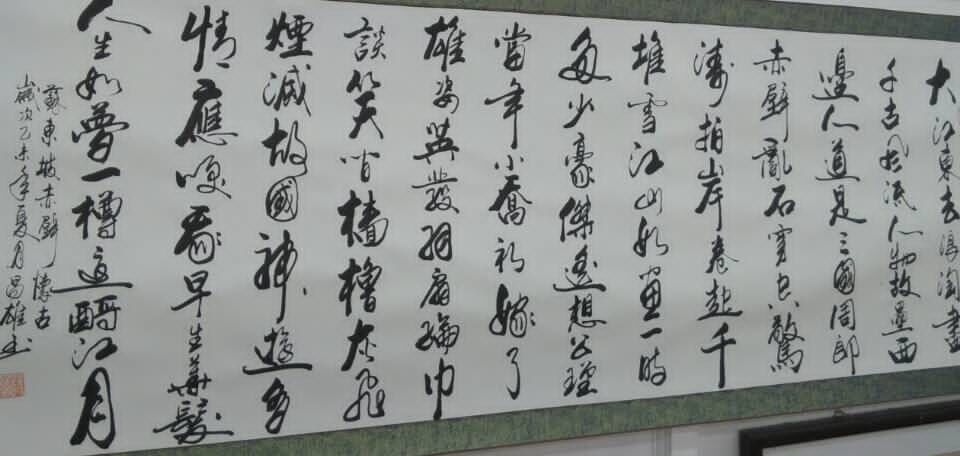 大江東去浪淘盡
千古風流人物故壘西
邊人道是三國周郎
赤壁亂石穿空驚
濤拍岸卷起千
堆雪江山如畫一時
多少豪傑遙想公瑾
當年小喬初嫁了
雄姿英發羽扇綸巾
談笑間檣櫓灰飛
煙滅故國神遊多
情應笑我早生華髮
人生如夢一樽還酹江月
蘇東坡赤壁懷古
歲次乙未年夏月昌雄書